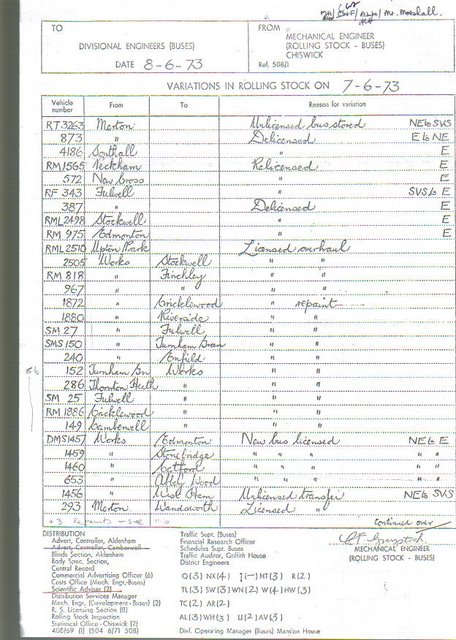 Mr. Marshall.
TO
DIVISIONAL ENGINEERS (BUSES)
DATE 8-6-73
FROM
MECHANICAL ENGINEER
(ROLLING STOCK - BUSES)
CHISWICK
Ref. 508/1
VARIATIONS IN ROLLING STOCK ON 7-6-73
Vehicle number From To Reason for variation
RT 3263 Merton Unlicensed bus stored NE to SVS
873 " Delicensed E to NE
4186 Southall " E
RM 1565 Peckham Relicensed E
572 New Cross " E
RF 343 Fulwell " SVS to E
387 " Delicensed E
RML 2498 Stockwell " E
RM 975 Edmonton " E
RML 2570 Upton Park Licensed overhaul
2505 Works Stockwell " "
RM 818 " Finchley " "
967 " " " "
1872 " Cricklewood " repaint
1880 " Riverside " "
SM 27 " Fulwell " "
SMS 150 " Turnham Green " "
240 " Enfield " "
152 Turnham Gn Works " "
286 Thornton Heath " " "
SM 25 Fulwell " " "
RM 1886 Cricklewood " " "
149 Camberwell " " "
DMS 1457 Works Edmonton New bus licensed NE to E
1459 " Stonebridge " " " " " "
1460 " Catford " " " " " "
653 " Abbey Wood " " " " " "
1456 " West Ham Unlicensed transfer NE to SVS
293 Merton Wandsworth Licensed "
+3 Repaints - see
continued over
86
DISTRIBUTION
Advert. Controller, Aldenham
Advert. Controller, Camberwell
Blinds Section, Aldenham
Body Spec. Section,
Central Record
Commercial Advertising Officer (6)
Costs Office (Mech. Engr.-Buses)
Scientific Adviser (2)
Distribution Services Manager
Mech. Engr. (Development - Buses) (2)
R. S. Licensing Section (8)
Rolling Stock Inspection
Statistical Office - Chiswick (2)
408/69 (I) (504 6/71 508)
Traffic Supt. (Buses)
Financial Research Officer
Schedules Supt. Buses
Traffic Auditor, Griffith House
District Engineers
Q (3) NX (4) HT (3) R (2)
TL (3) SW (3) WN (2) W (4) HW (3)
TC (2) AR (2)
AL (3) WH (3) U (2) AV (3)
Divl. Operating Manager (Buses) Mansion House
MECHANICAL ENGINEER
(ROLLING STOCK - BUSES)